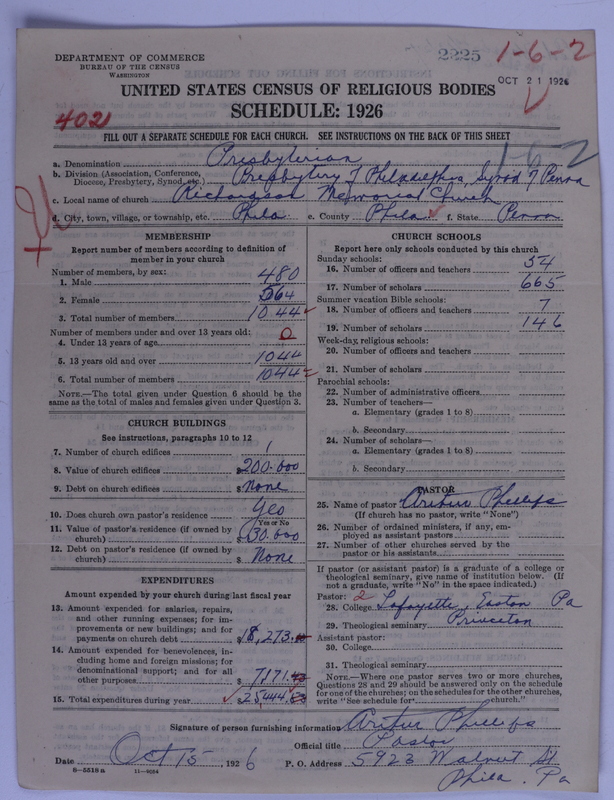 DEPARTMENT OF COMMERCE
BUREAU OF THE CENSUS
WASHINGTON
2225
1-6-2
OCT 21 1926
UNITED STATES CENSUS OF RELIGIOUS BODIES
SCHEDULE: 1926
4021
FILL OUT A SEPARATE SCHEDULE FOR EACH CHURCH. SEE INSTRUCTIONS ON THE BACK OF THIS SHEET
1-6-2
a. Denomination Presbyterian
b. Division (Association, Conference, Diocese, Presbytery, Synod, etc.) Presbytery of Philadelphia, Synod of Penna
c. Local name of church Richardson Memorial Church
d. City, town, village, or township, etc. Phila e. County Phila f. State Penna
MEMBERSHIP
Report number of members according to definition of member in your church
Number of members, by sex:
1. Male 480
2. Female 564
3. Total number of members 1044
Number of members under and over 13 years old:
4. Under 13 years of age 0
5. 13 years old and over 1044
6. Total number of members 1044
NOTE.—The total given under Question 6 should be same as the total of males and females given under Question 3.
CHURCH BUILDINGS
See instructions, paragraphs 10 to 12
7. Number of church edifices 1
8. Value of church edifices $200.000
9. Debt on church edifices $ None
10. Does church own pastor's residence? Yes
Yes or No
11. Value of pastor's residence (if owned by church) $30.000
12. Debt on pastor's residence (if owned by church) $ None
EXPENDITURES
Amount expended by your church during last fiscal year
13. Amount expended for salaries, repairs, and other running expenses; for improvements or new buildings; and for payments on church debt $18,273.
14. Amount expended for benevolences, including home and foreign missions; for denominational support; and for all other purposes 7171.
15. Total expenditures during year $25444.
CHURCH SCHOOLS
Report here only schools conducted by this church
Sunday schools:
16. Number of officers and teachers 54
17. Number of scholars 665
Summer vacation Bible schools:
18. Number of officers and teachers 7
19. Number of scholars 146
Week-day religious schools:
20. Number of officers and teachers
21. Number of scholars
Parochial schools:
22. Number of administrative officers
23. Number of teachers—
a. Elementary (grades 1 to 8)
b. Secondary
24. Number of scholars—
a. Elementary (grades 1 to 8)
b. Secondary
PASTOR
25. Name of pastor Arthur Phillips
(If church has no pastor, write "None")
26. Number of ordained ministers, if any, employed as assistant pastors
27. Number of other churches served by the pastor or his assistants
If pastor (or assistant pastor) is a graduate of a college or theological seminary, give name of institution below. (If not a graduate, write "No" in the space indicated.)
Pastor: 2
28. College Lafayette, Easton Pa
29. Theological seminary Princeton
Assistant pastor:
30. College
31. Theological seminary
NOTE.—Where one pastor serves two or more churches, Questions 28 and 29 should be answered only on the schedule for one of the churches; on the schedules for the other churches, write "See schedule for church."
Signature of person furnishing information Arthur Phillips
Official title Pastor
Date Oct 15, 1926 P. O. Address 5923 Walnut St
Phila. Pa
8-5518a 11-9064